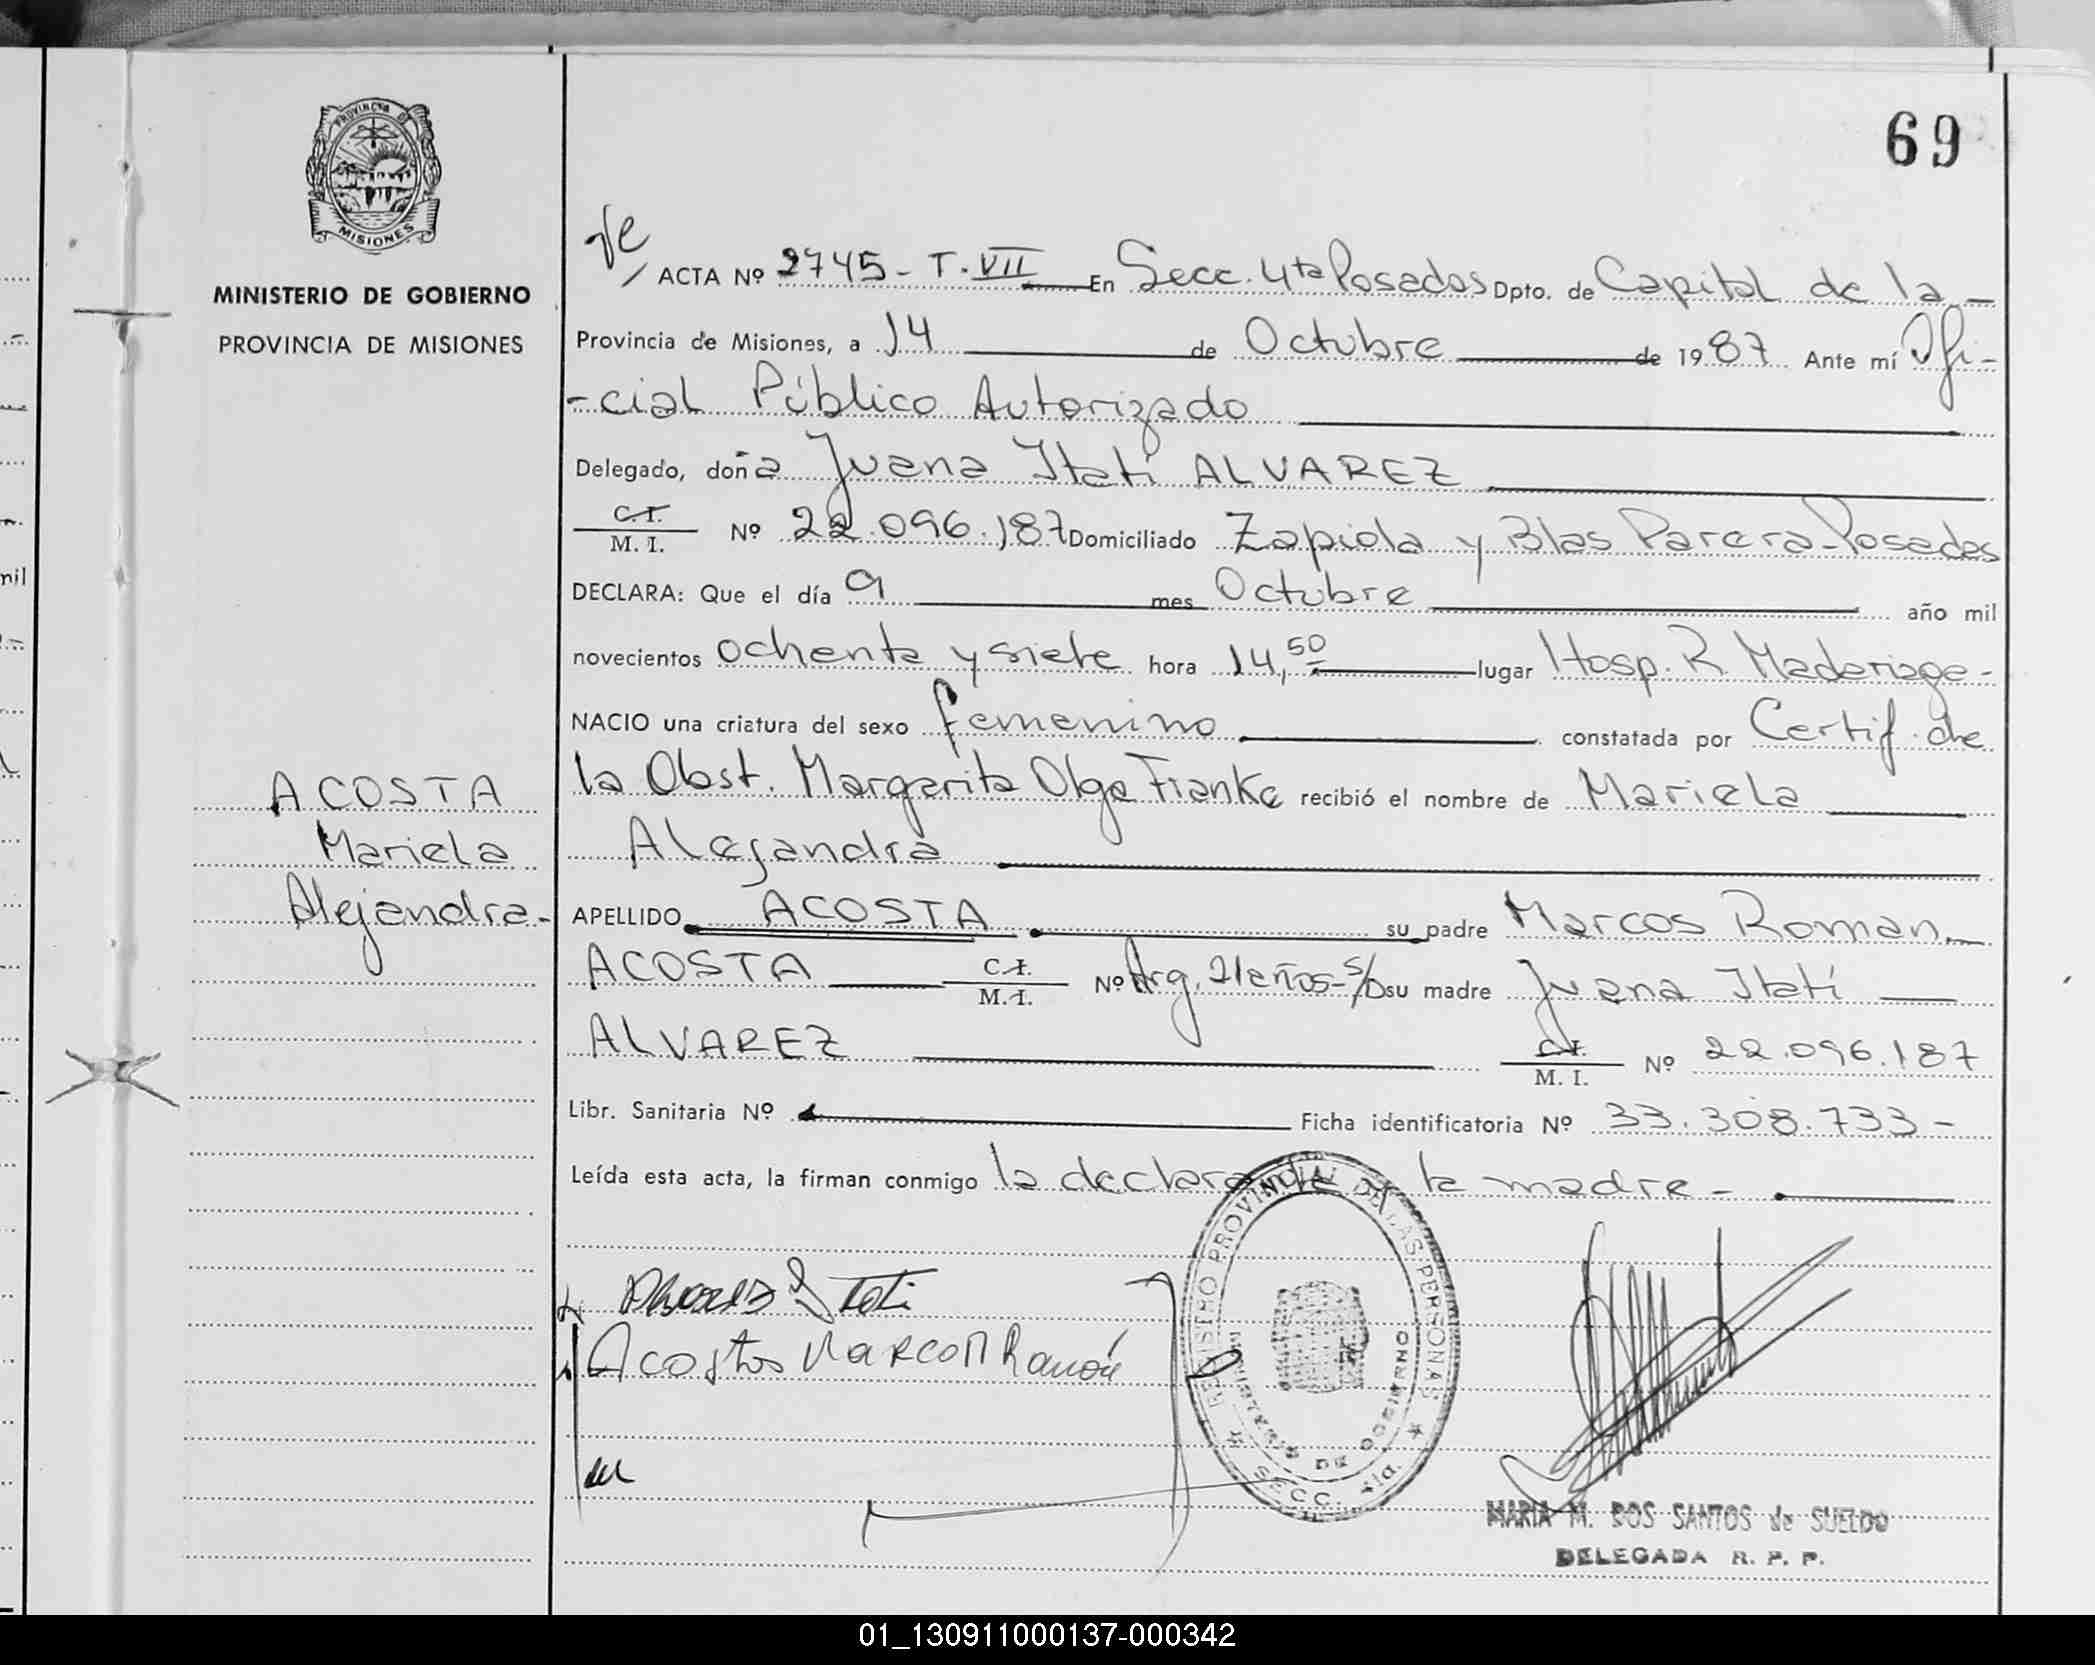 69
PROVINCIA DE
MISIONES
MINISTERIO DE GOBIERNO
PROVINCIA DE MISIONES
ACOSTA
Mariela
Alejandra-
ACTA Nº 2745- T. VII En Secc. 4ta Posadas Dpto. de Capital de la -
Provincia de Misiones, a 14 de Octubre de 1987 Ante mí Ofi-
-cial Público Autorizado
Delegado, doña Juana Itatí ALVAREZ
C. I.
M. I. Nº 22.096.187 Domiciliado Zapiola y Blas Parera-Posadas
DECLARA: Que el día 9 mes Octubre año mil
novecientos ochenta y siete hora 14,50 lugar Hosp. R. Madariaga-
NACIO una criatura del sexo femenino constatada por Certif. de
la Obst. Margarita Olga Franke recibió el nombre de Mariela
Alejandra
APELLIDO ACOSTA su padre Marcos Roman
ACOSTA C.I. M.I. Nº Arg. 21 años-s/D su madre Juana Itatí
ALVAREZ C.I. M. I. Nº 22.096.187
Libr. Sanitaria Nº Ficha identificatoria Nº 33.308.733-
Leída esta acta, la firman conmigo la declarante y la madre-
Alvarez J Itati
Acosta Marcos Ramón
REGISTRO PROVINCIAL DE LAS PERSONAS
MINISTERIO DE GOBIERNO
SECC. 4ta.
MARIA M. DOS SANTOS de SUELDO
DELEGADA R. P. P.
01_130911000137-000342